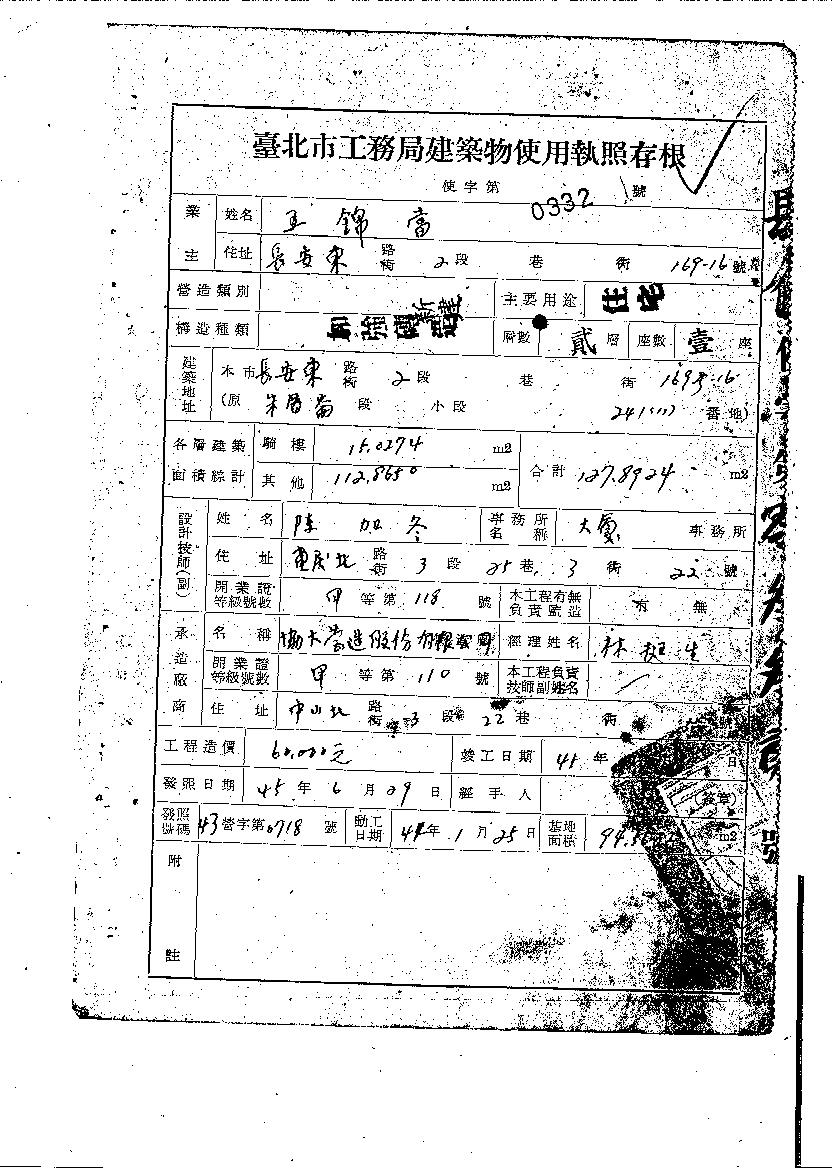 臺北市工務局建築物使用執照存根
使字第 0332 號
業主 姓名 王錦富
住址 長安東 路街 2段 巷 街 169-16 號
營造類別 新建 主要用途 住宅
構造種類 加強磚造 層數 貳層 座數 壹座
建築地址 本市長安東 路街 2段 巷 街 169-16
(原 朱厝崙 段 小段 241 番地)
各層建築面積綜計 騎樓 15.0274 m2
其他 112.8650 m2 合計 127.8924 m2
設計技師(副) 姓名 陳加冬 事務所名稱 大 事務所
住址 重慶北 路街 3段 25巷 3街 22號
開業證等級號數 甲等第118號 本工程有無負責監造 有 無
承造廠商 名稱 協大營造股份有限公司 經理姓名 林挺生
開業證等級號數 甲等第110號 本工程負責技師副姓名
住址 中山北 路街 3段 22巷 街
工程造價 60,000元 竣工日期 45年 日
發照日期 45年6月29日 經手人 (簽章)
發照號碼 43營字第0718號 動工日期 44年1月25日 基地面積 94.36 m2
附註